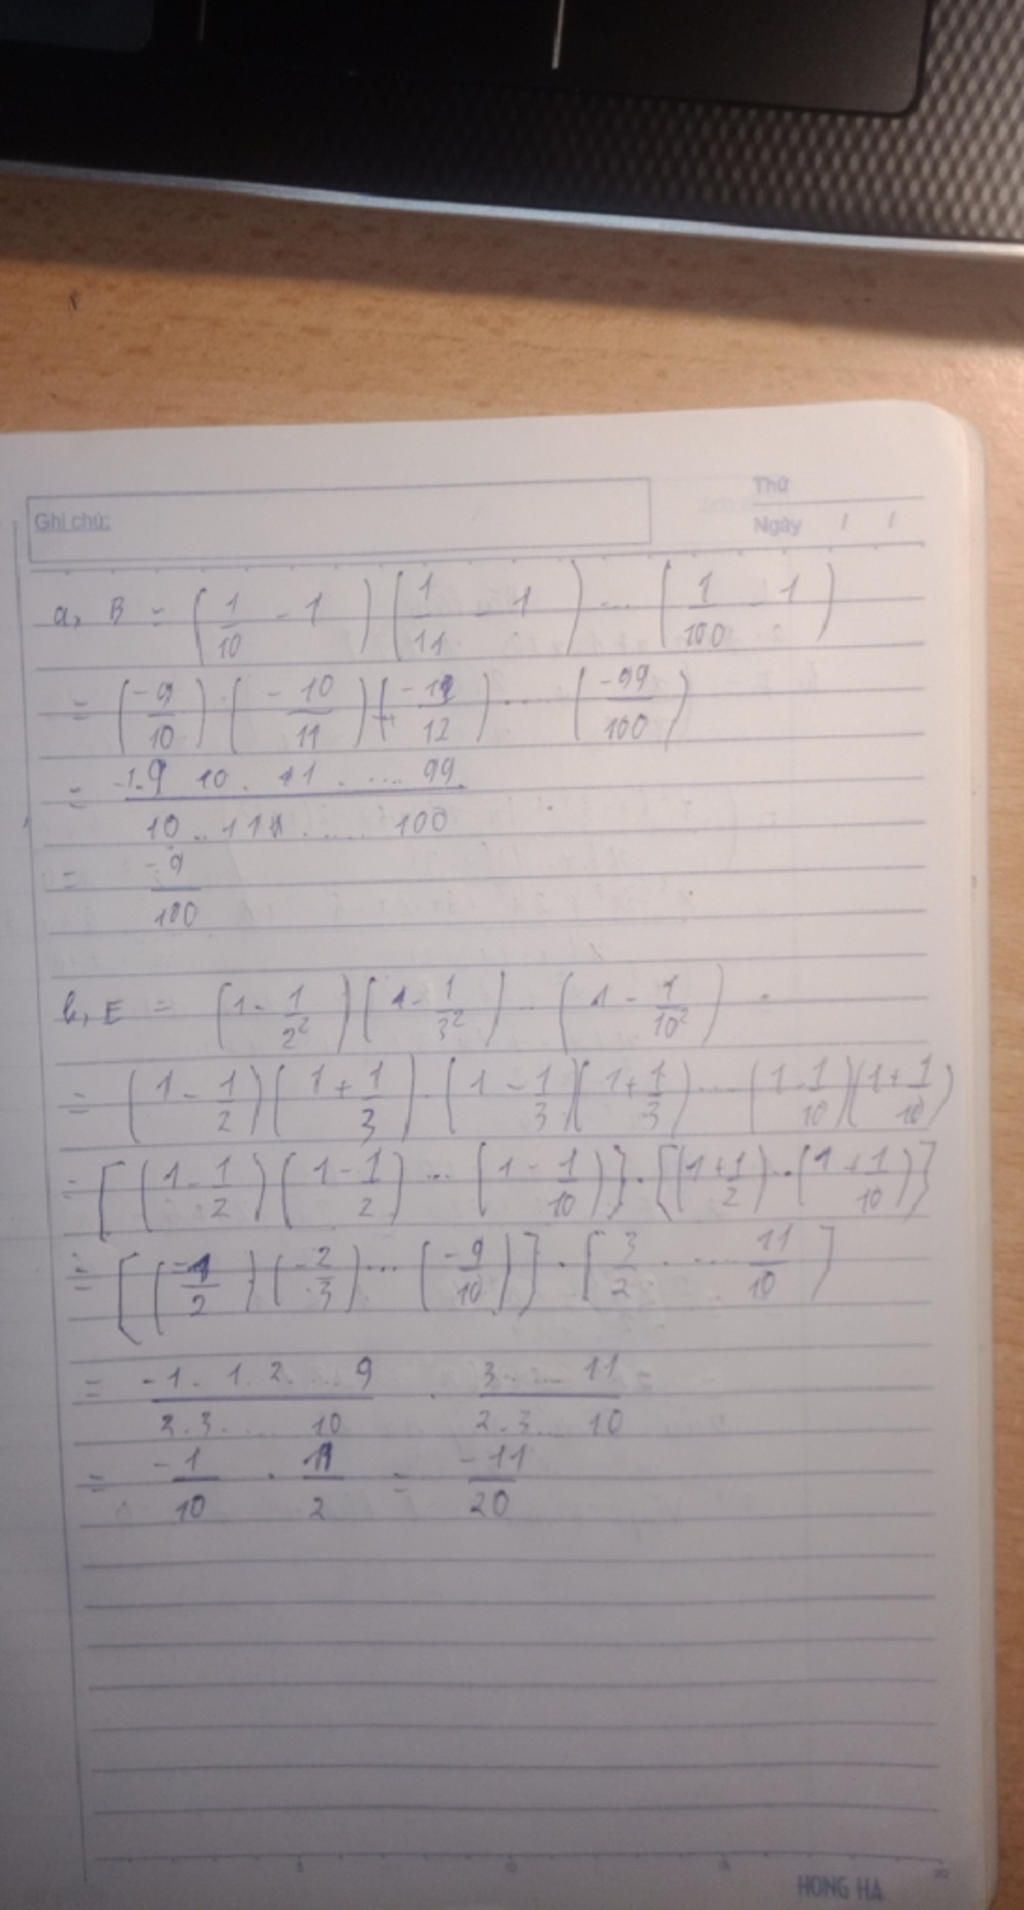 Ghi chú:
Thứ
Ngày / /
a, B = (1/10 - 1) (1/11 - 1) ... (1/100 - 1)
= (-9/10) . (-10/11) (-11/12) .... (-99/100)
= -1.9 10 . 11 . .... 99 / 10 .. 11 ..... 100
= -9/100
b, E = (1 - 1/2²) (1 - 1/3²) ... (1 - 1/10²)
= (1 - 1/2) (1 + 1/3) . (1 - 1/3) (1 + 1/3) .... (1 - 1/10) (1 + 1/10)
= [(1 - 1/2) (1 - 1/2) ... (1 - 1/10)] . [(1 + 1/2) .. (1 + 1/10)]
= [(-1/2) (-2/3) ... (-9/10)] . [3/2 . .... 11/10]
= -1 . 1 . 2 .... 9 / 2 . 3 ..... 10 . 3 ..... 11 / 2 . 3 .... 10
= -1/10 . 11/2 = -11/20
5 10 15 20
HONG HA